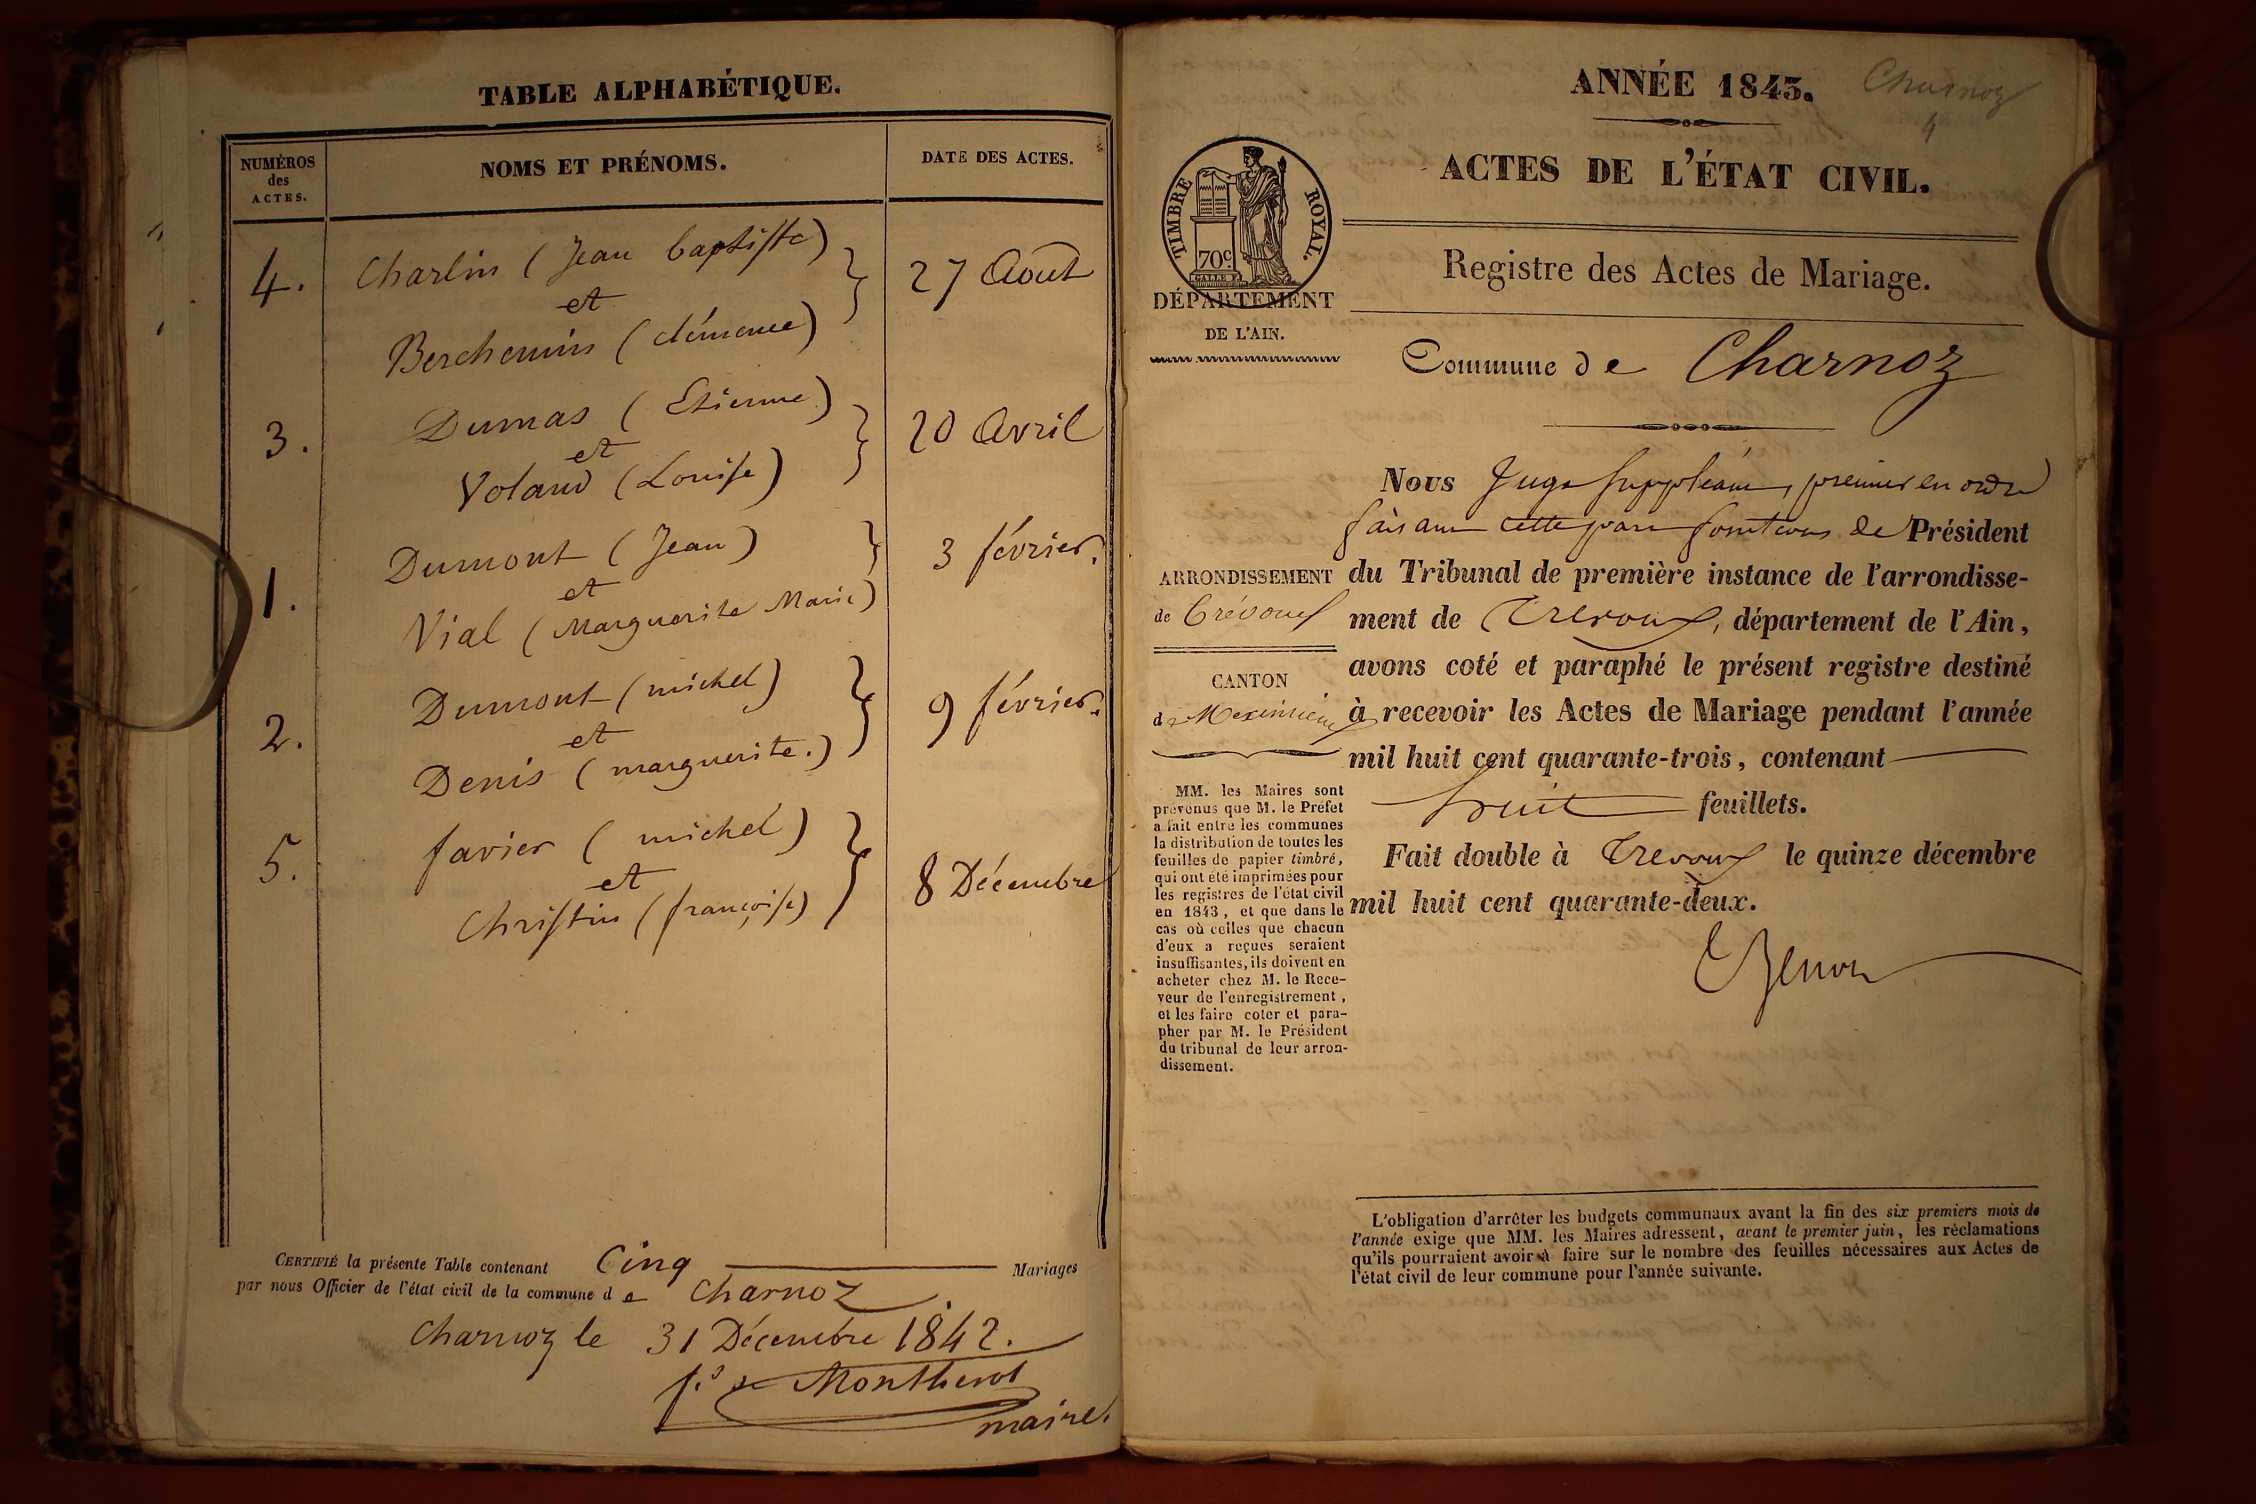 TABLE ALPHABÉTIQUE.
NUMÉROS
des
ACTES.
NOMS ET PRÉNOMS.
DATE DES ACTES.
4.
Charlin (Jean baptiste)
et
Berchemin (clémence)
27 Août
3.
Dumas (Etienne)
et
Voland (Louise)
20 Avril
1.
Dumont (Jean)
et
Vial (Marguerite Marie)
3 février.
2.
Dumont (michel)
et
Denis (marguerite.)
9 février.
5.
favier (michel)
et
Christin (françoise)
8 Décembre
CERTIFIÉ la présente Table contenant Cinq Mariages
par nous Officier de l'état civil de la commune de Charnoz
Charnoz le 31 Décembre 1842.
Montherot
maire.
ANNÉE 1843. Charnoz
4
ACTES DE L'ÉTAT CIVIL.
TIMBRE ROYAL.
70c.
DÉPARTEMENT
DE L'AIN.
Registre des Actes de Mariage.
Commune de Charnoz
Nous Juge Suppléant, premier en ordre
faisant fonctions de Président
du Tribunal de première instance de l'arrondisse-
ment de Trevoux, département de l'Ain,
avons coté et paraphé le présent registre destiné
à recevoir les Actes de Mariage pendant l'année
mil huit cent quarante-trois, contenant
huit feuillets.
Fait double à Trevoux le quinze décembre
mil huit cent quarante-deux.
ARRONDISSEMENT
de Trévoux
CANTON
de Meximieux
MM. les Maires sont
prévenus que M. le Préfet
a fait entre les communes
la distribution de toutes les
feuilles de papier timbré,
qui ont été imprimées pour
les registres de l'état civil
en 1843, et que dans le
cas où celles que chacun
d'eux a reçues seraient
insuffisantes, ils doivent en
acheter chez M. le Rece-
veur de l'enregistrement,
et les faire coter et para-
pher par M. le Président
du tribunal de leur arron-
dissement.
L'obligation d'arrêter les budgets communaux avant la fin des six premiers mois de
l'année exige que MM. les Maires adressent, avant le premier juin, les réclamations
qu'ils pourraient avoir à faire sur le nombre des feuilles nécessaires aux Actes de
l'état civil de leur commune pour l'année suivante.